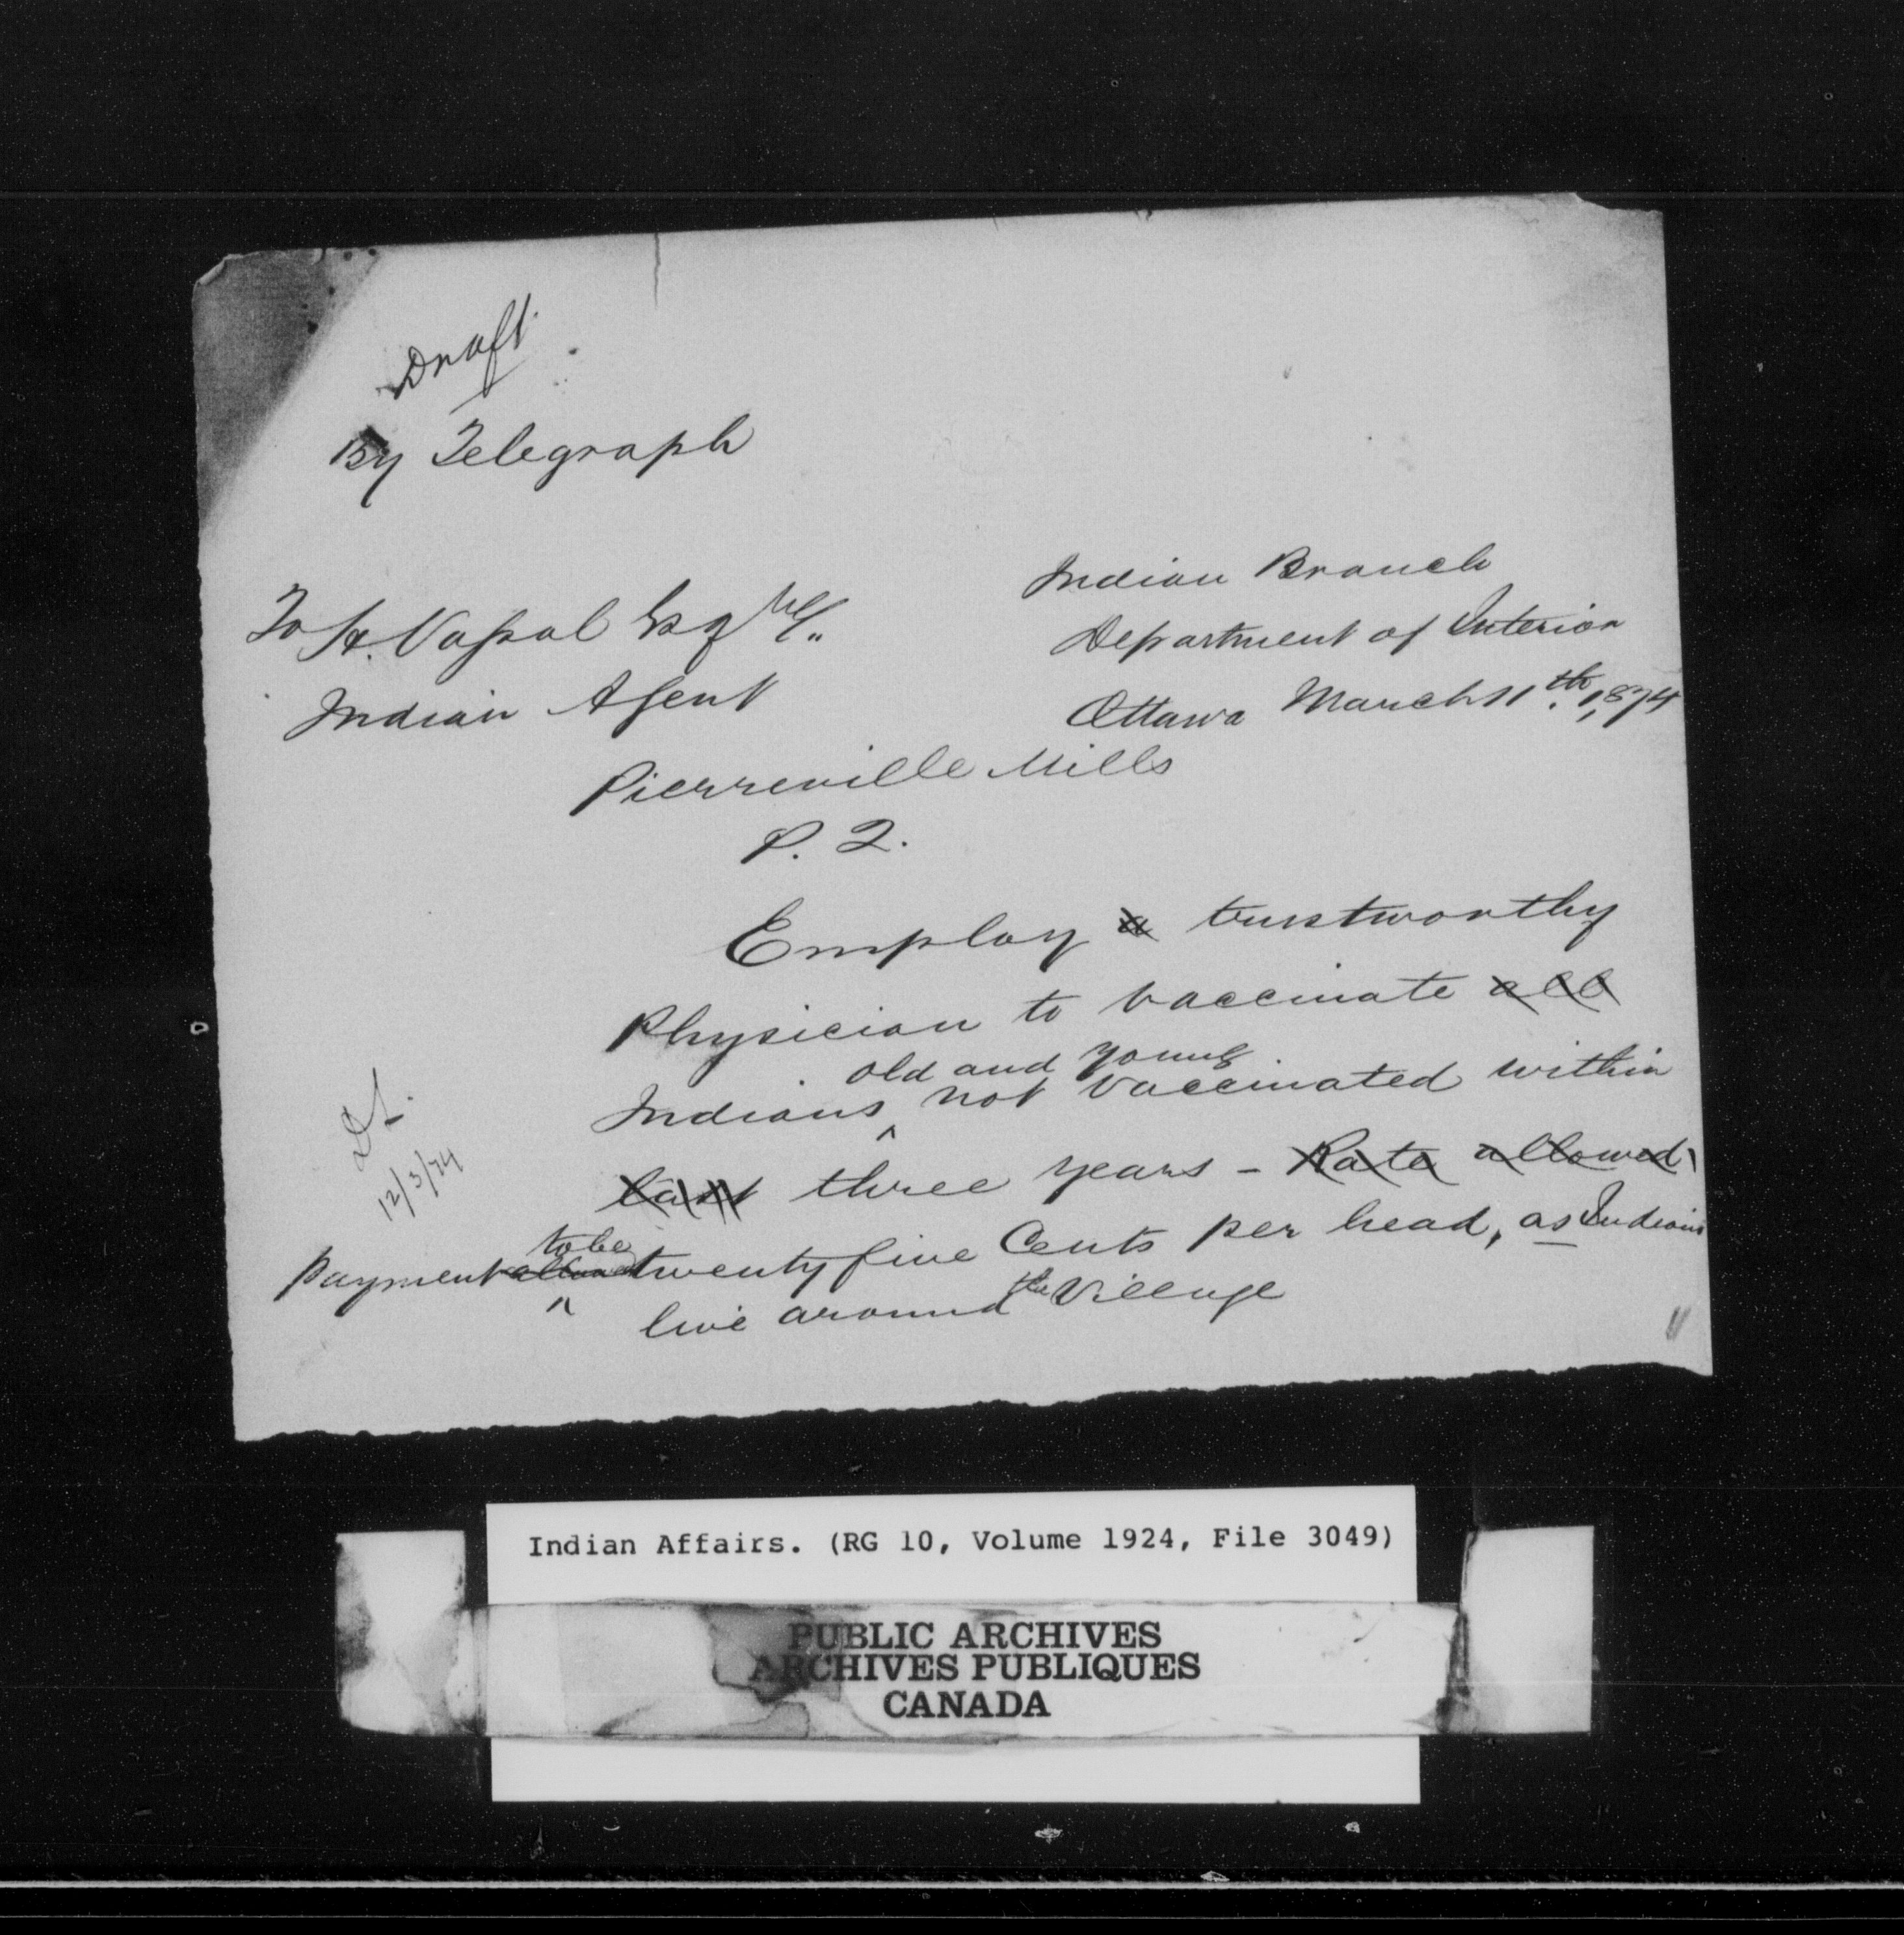 Draft.
By Telegraph
Indian Branch
Department of Interior
Ottawa March 11th. 1874
To H. Vassal Esqre.
Indian Agent
Pierreville Mills
P. Q.
Employ a trustworthy
Physician to vaccinate all
old and young
Indians ^ not vaccinated within
last three years - Rate allowed
to be
payment allowed twenty five Cents per head, as Indians
live around the Village
12/3/74
Indian Affairs. (RG 10, Volume 1924, File 3049)
PUBLIC ARCHIVES
ARCHIVES PUBLIQUES
CANADA